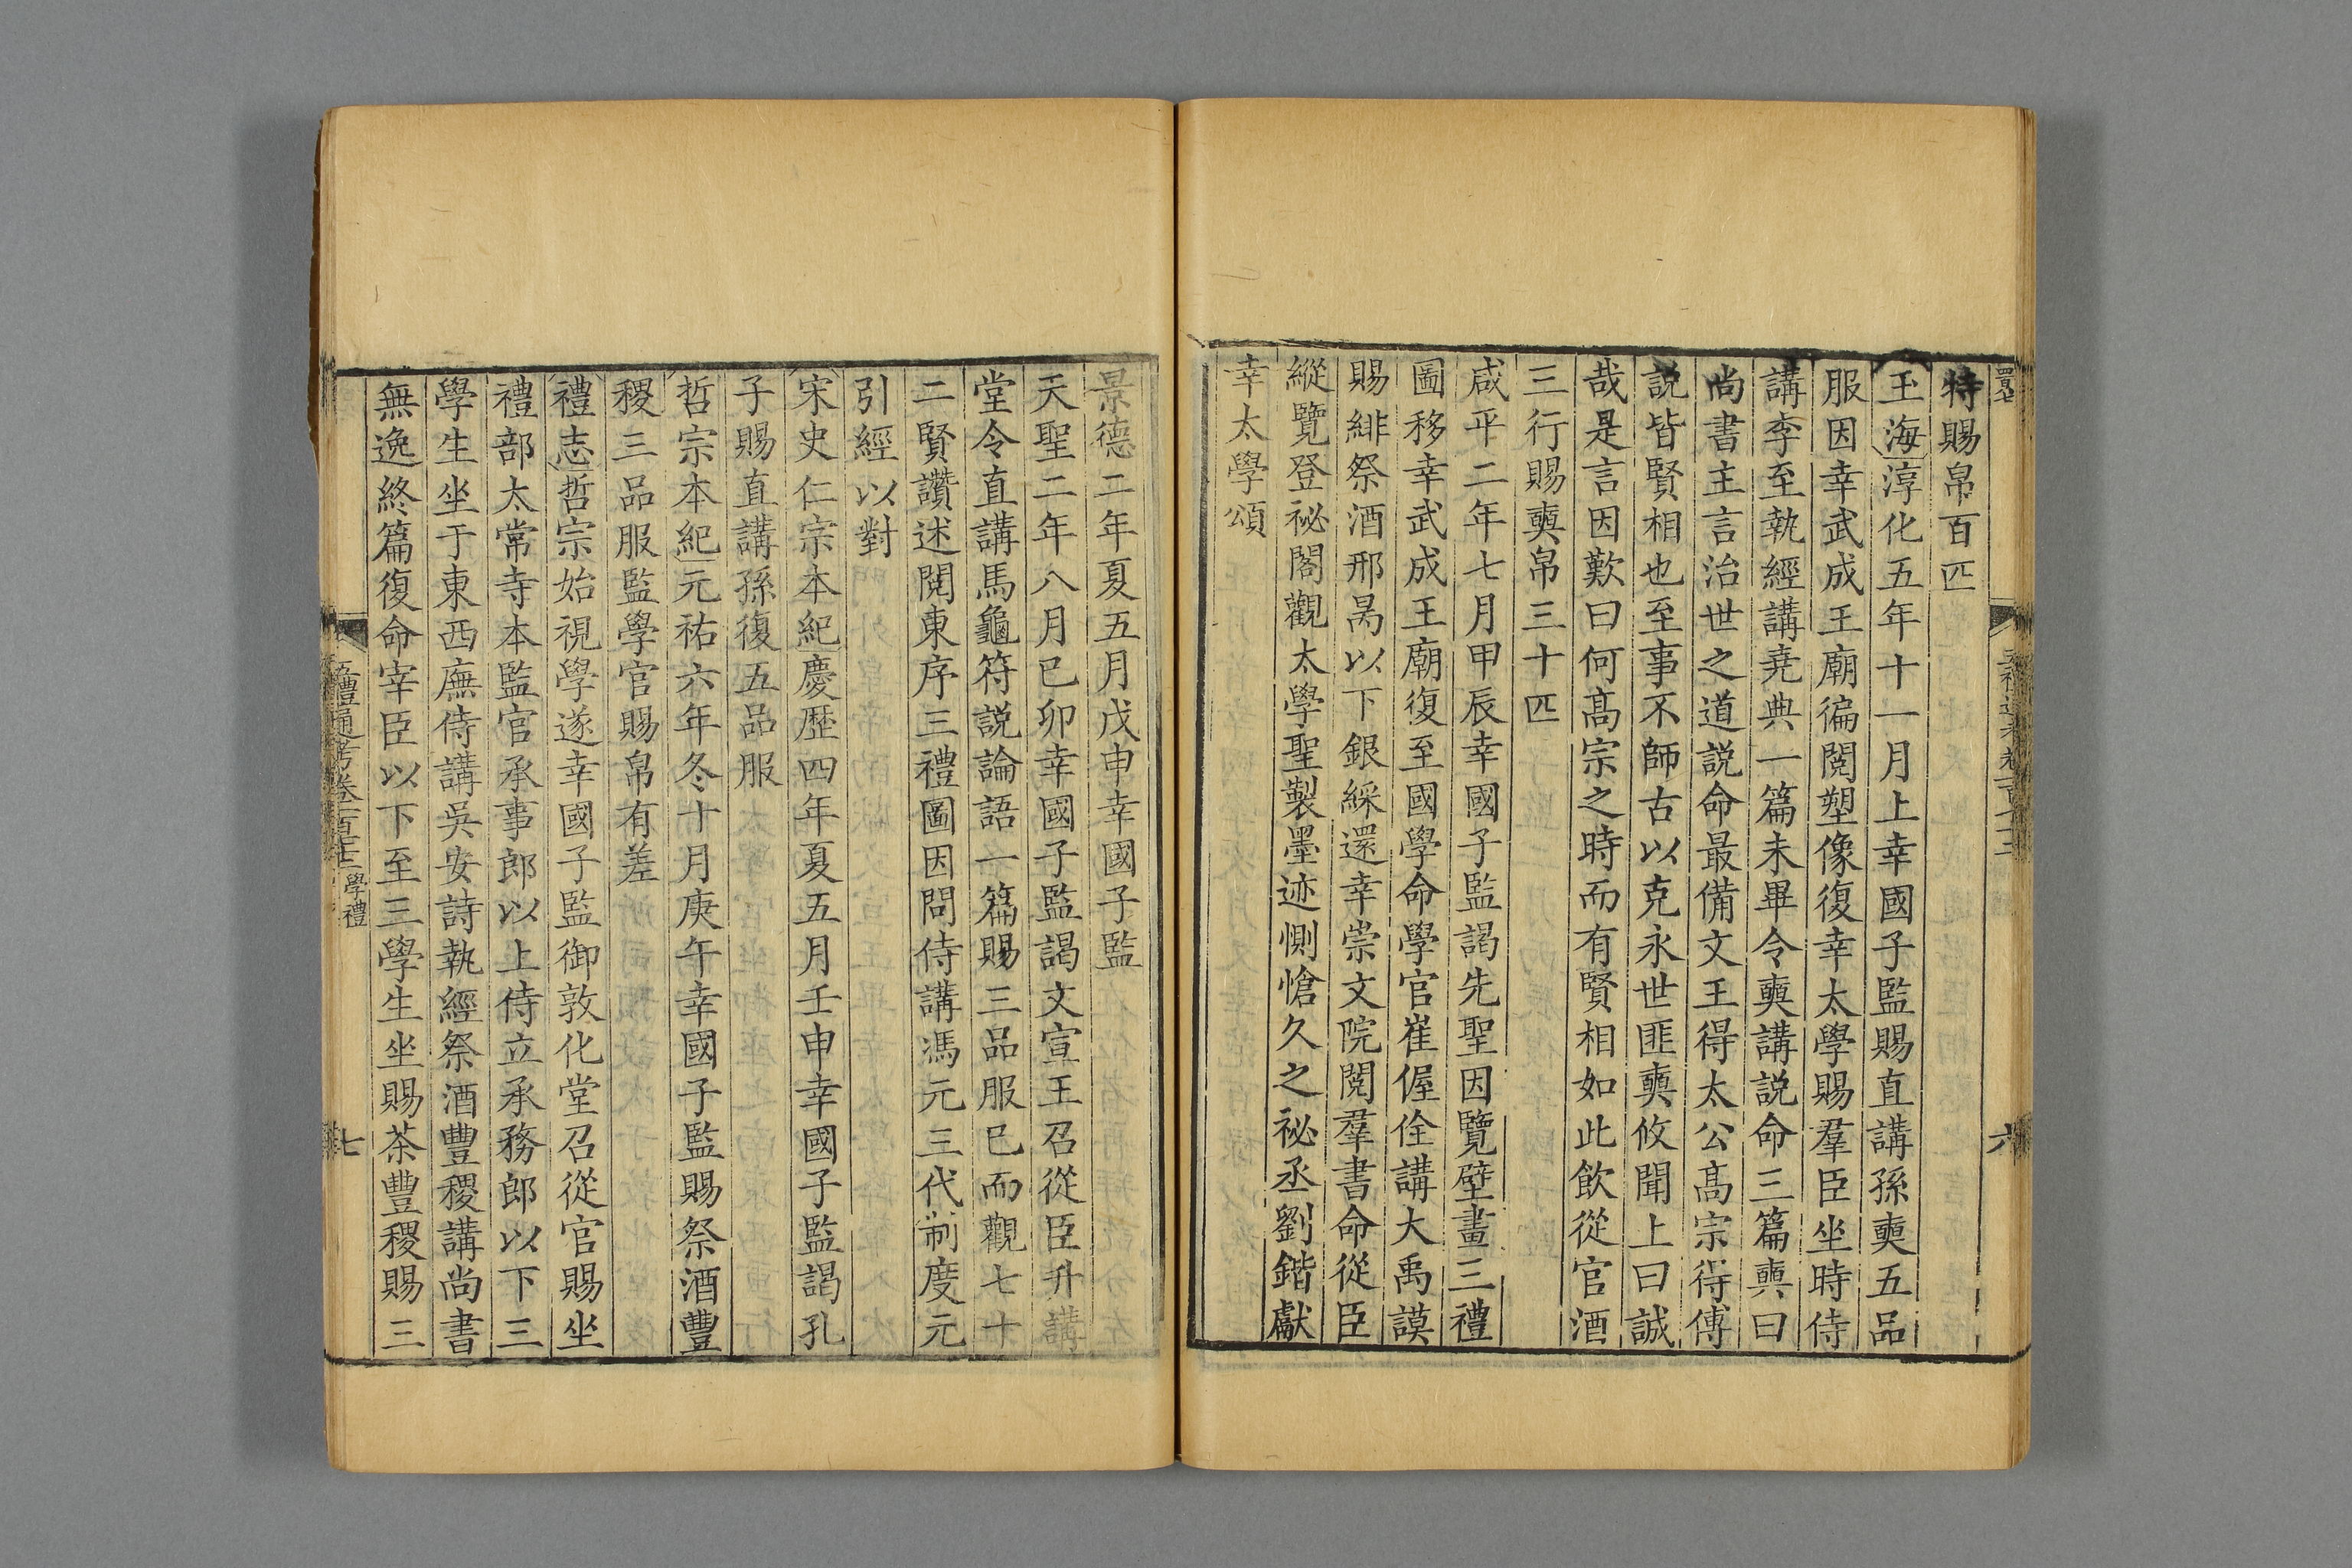 特賜帛百匹
玉海淳化五年十一月上幸國子監賜直講孫奭五品
服因幸武成王廟徧閱塑像復幸太學賜羣臣坐時侍
講李至執經講堯典一篇未畢令奭講說命三篇奭曰
尚書主言治世之道說命最備文王得太公高宗得傅
說皆賢相也至事不師古以克永世匪奭攸聞上曰誠
哉是言因歎曰何高宗之時而有賢相如此飲從官酒
三行賜奭帛三十匹
咸平二年七月甲辰幸國子監謁先聖因覽壁畫三禮
圖移幸武成王廟復至國學命學官崔偓佺講大禹謨
賜緋祭酒邢昺以下銀綵還幸崇文院閱羣書命從臣
縱覽登祕閣觀太學聖製墨迹惻愴久之祕丞劉鍇獻
幸太學頌
六
景德二年夏五月戊申幸國子監
天聖二年八月己卯幸國子監謁文宣王召從臣升講
堂令直講馬龜符說論語一篇賜三品服已而觀七十
二賢讚述閱東序三禮圖因問侍講馮元三代制度元
引經以對
宋史仁宗本紀慶歷四年夏五月壬申幸國子監謁孔
子賜直講孫復五品服
哲宗本紀元祐六年冬十月庚午幸國子監賜祭酒豐
稷三品服監學官賜帛有差
禮志哲宗始視學遂幸國子監御敦化堂召從官賜坐
禮部太常寺本監官承事郎以上侍立承務郎以下三
學生坐于東西廡侍講吳安詩執經祭酒豐稷講尚書
無逸終篇復命宰臣以下至三學生坐賜茶豐稷賜三
五禮通考卷一百七十二 學禮
七